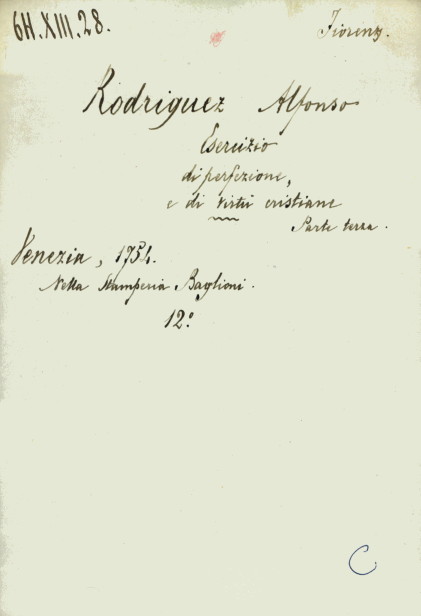 6H.XIII.28.
Fiorenz.
Rodriguez Alfonso
Esercizio
di perfezione,
e di virtù cristiane
Parte terza.
Venezia, 1754.
Nella Stamperia Baglioni.
12º
C